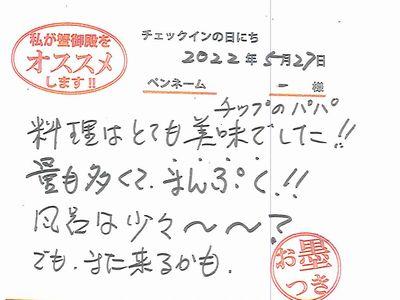 私が蟹御殿を
オススメ
します!!
チェックインの日にち
2022年5月27日
ペンネーム ー 様
チップのパパ
料理はとても美味でした!!
量も多くて、まんぷく!!
風呂は少々〜〜?
でも、また来るかも.
お墨
つき